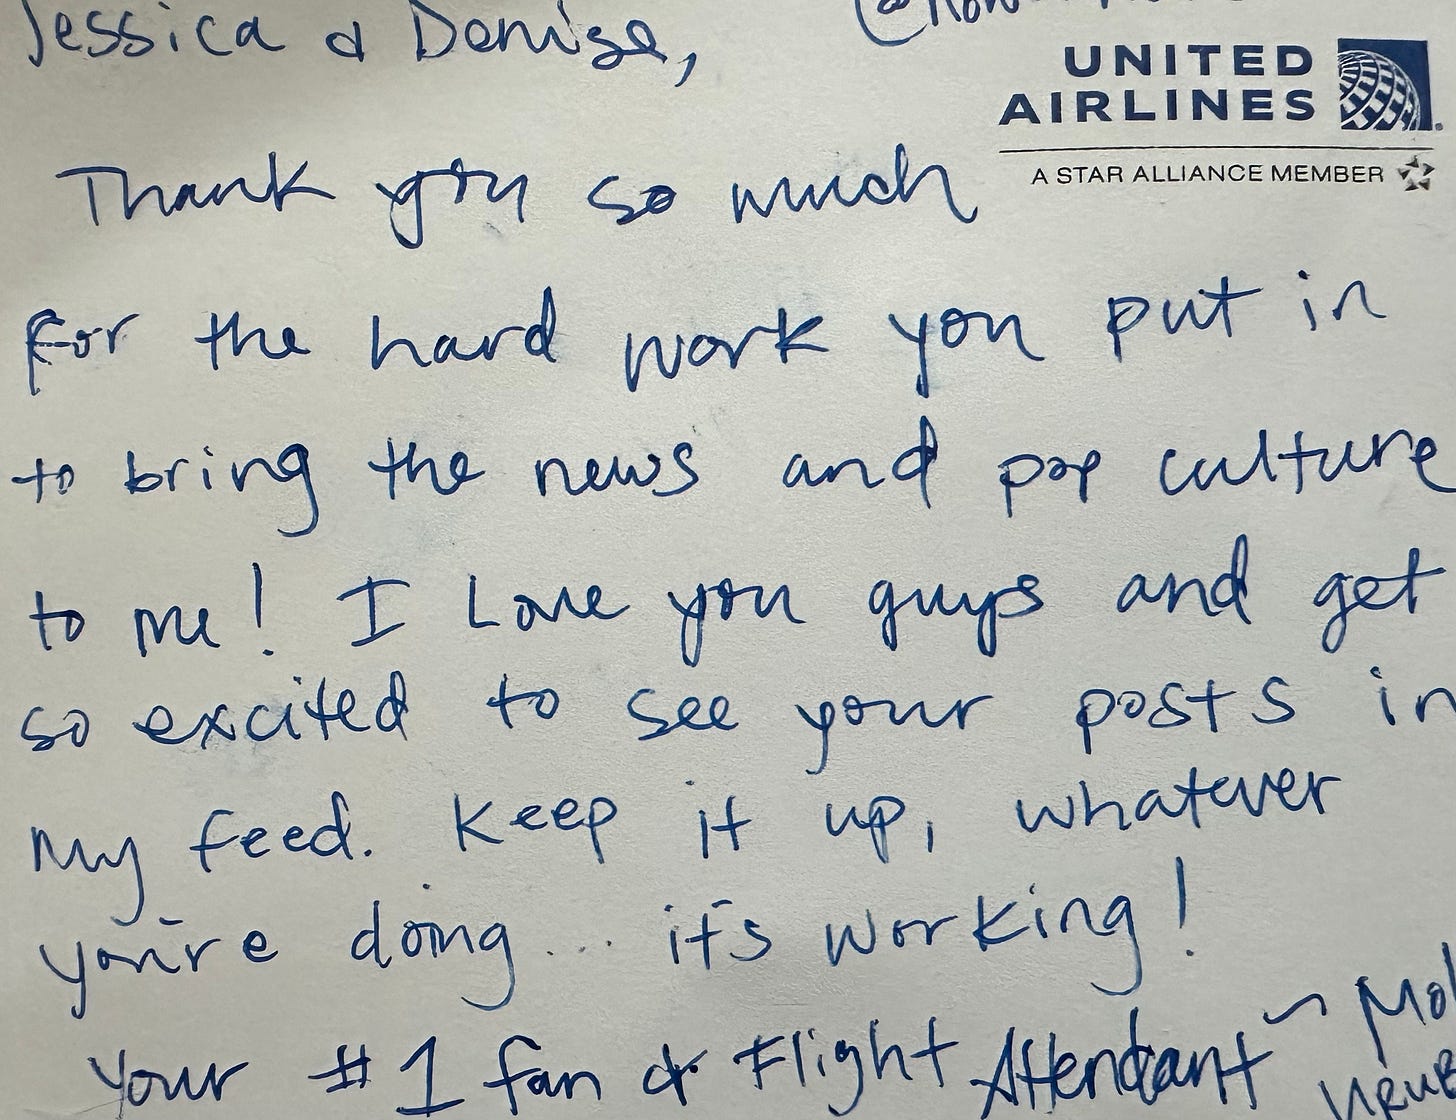 Jessica & Denise,
UNITED
AIRLINES
A STAR ALLIANCE MEMBER
Thank you so much
for the hard work you put in
to bring the news and pop culture
to me! I Love you guys and get
so excited to see your posts in
my feed. Keep it up, whatever
you're doing... it's working!
Your #1 fan & Flight Attendant ~